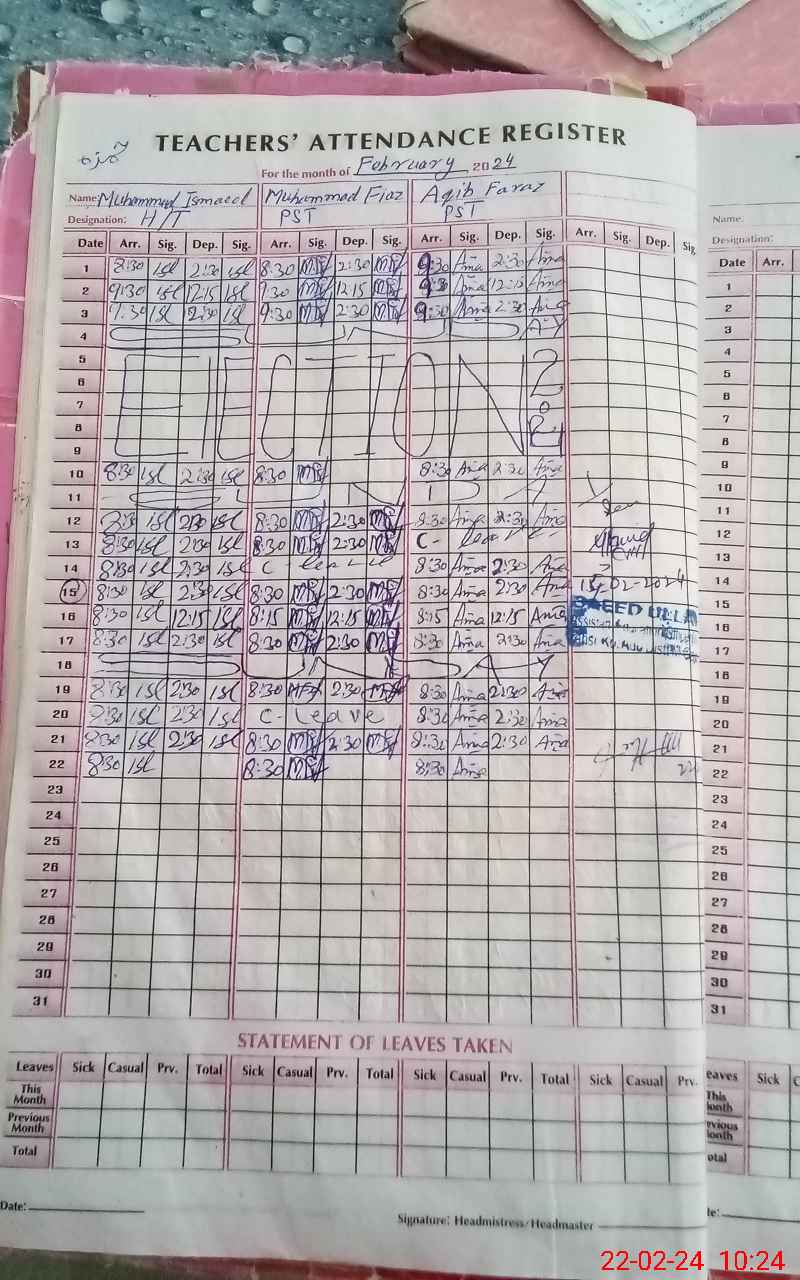 TEACHERS' ATTENDANCE REGISTER
For the month of February 2024
Name: Muhammad Ismaeel Muhammad Fiaz Aqib Faraz
Designation: H/T PST PST
Date Arr. Sig. Dep. Sig. Arr. Sig. Dep. Sig. Arr. Sig. Dep. Sig. Arr. Sig. Dep. Sig
1 8:30 Isl 2:30 Isl 8:30 2:30 9:30 Ama 2:30 Ama
2 9:30 Isl 12:15 Isl 9:30 12:15 9:30 Ama 12:15 Ama
3 9:30 Isl 2:30 Isl 9:30 2:30 9:30 Ama 2:30 Ama
4 SUNDAY
5
6
7
8
9
ELECTION 2024
10 8:30 Isl 2:30 Isl 8:30 8:30 Ama 2:30 Ama
11 SUNDAY
12 8:30 Isl 2:30 Isl 8:30 2:30 8:30 Ama 2:30 Ama
13 8:30 Isl 2:30 Isl 8:30 2:30 C- leave
14 8:30 Isl 2:30 Isl C- leave 8:30 Ama 2:30 Ama
15 8:30 Isl 2:30 Isl 8:30 2:30 8:30 Ama 2:30 Ama 15-02-2024
16 8:30 Isl 12:15 Isl 8:15 12:15 8:15 Ama 12:15 Ama
17 8:30 Isl 2:30 Isl 8:30 2:30 8:30 Ama 2:30 Ama
18 SUNDAY
19 8:30 Isl 2:30 Isl 8:30 2:30 8:30 Ama 2:30 Ama
20 8:30 Isl 2:30 Isl C- leave 8:30 Ama 2:30 Ama
21 8:30 Isl 2:30 Isl 8:30 2:30 8:30 Ama 2:30 Ama
22 8:30 Isl 8:30 8:30 Ama
23
24
25
26
27
28
29
30
31
STATEMENT OF LEAVES TAKEN
Leaves Sick Casual Prv. Total Sick Casual Prv. Total Sick Casual Prv. Total Sick Casual Prv.
This Month
Previous Month
Total
Date:
Signature: Headmistress/Headmaster
Name.
Designation:
Date Arr.
1
2
3
4
5
6
7
8
9
10
11
12
13
14
15
16
17
18
19
20
21
22
23
24
25
26
27
28
29
30
31
eaves Sick
This
onth
evious
onth
otal
te:
22-02-24 10:24